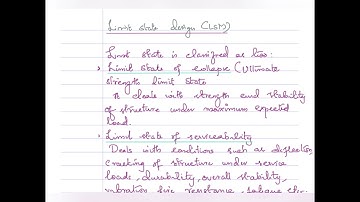 Limit state design (LSM)
Limit state is classified as two:
• Limit State of collapse (Ultimate
strength limit State
It deals with strength and stability
of structure under maximum expected
load.
• Limit state of serviceability
Deals with conditions such as deflection,
cracking of structure under service
loads, durability, overall stability,
vibration fire resistance, fatigue etc.